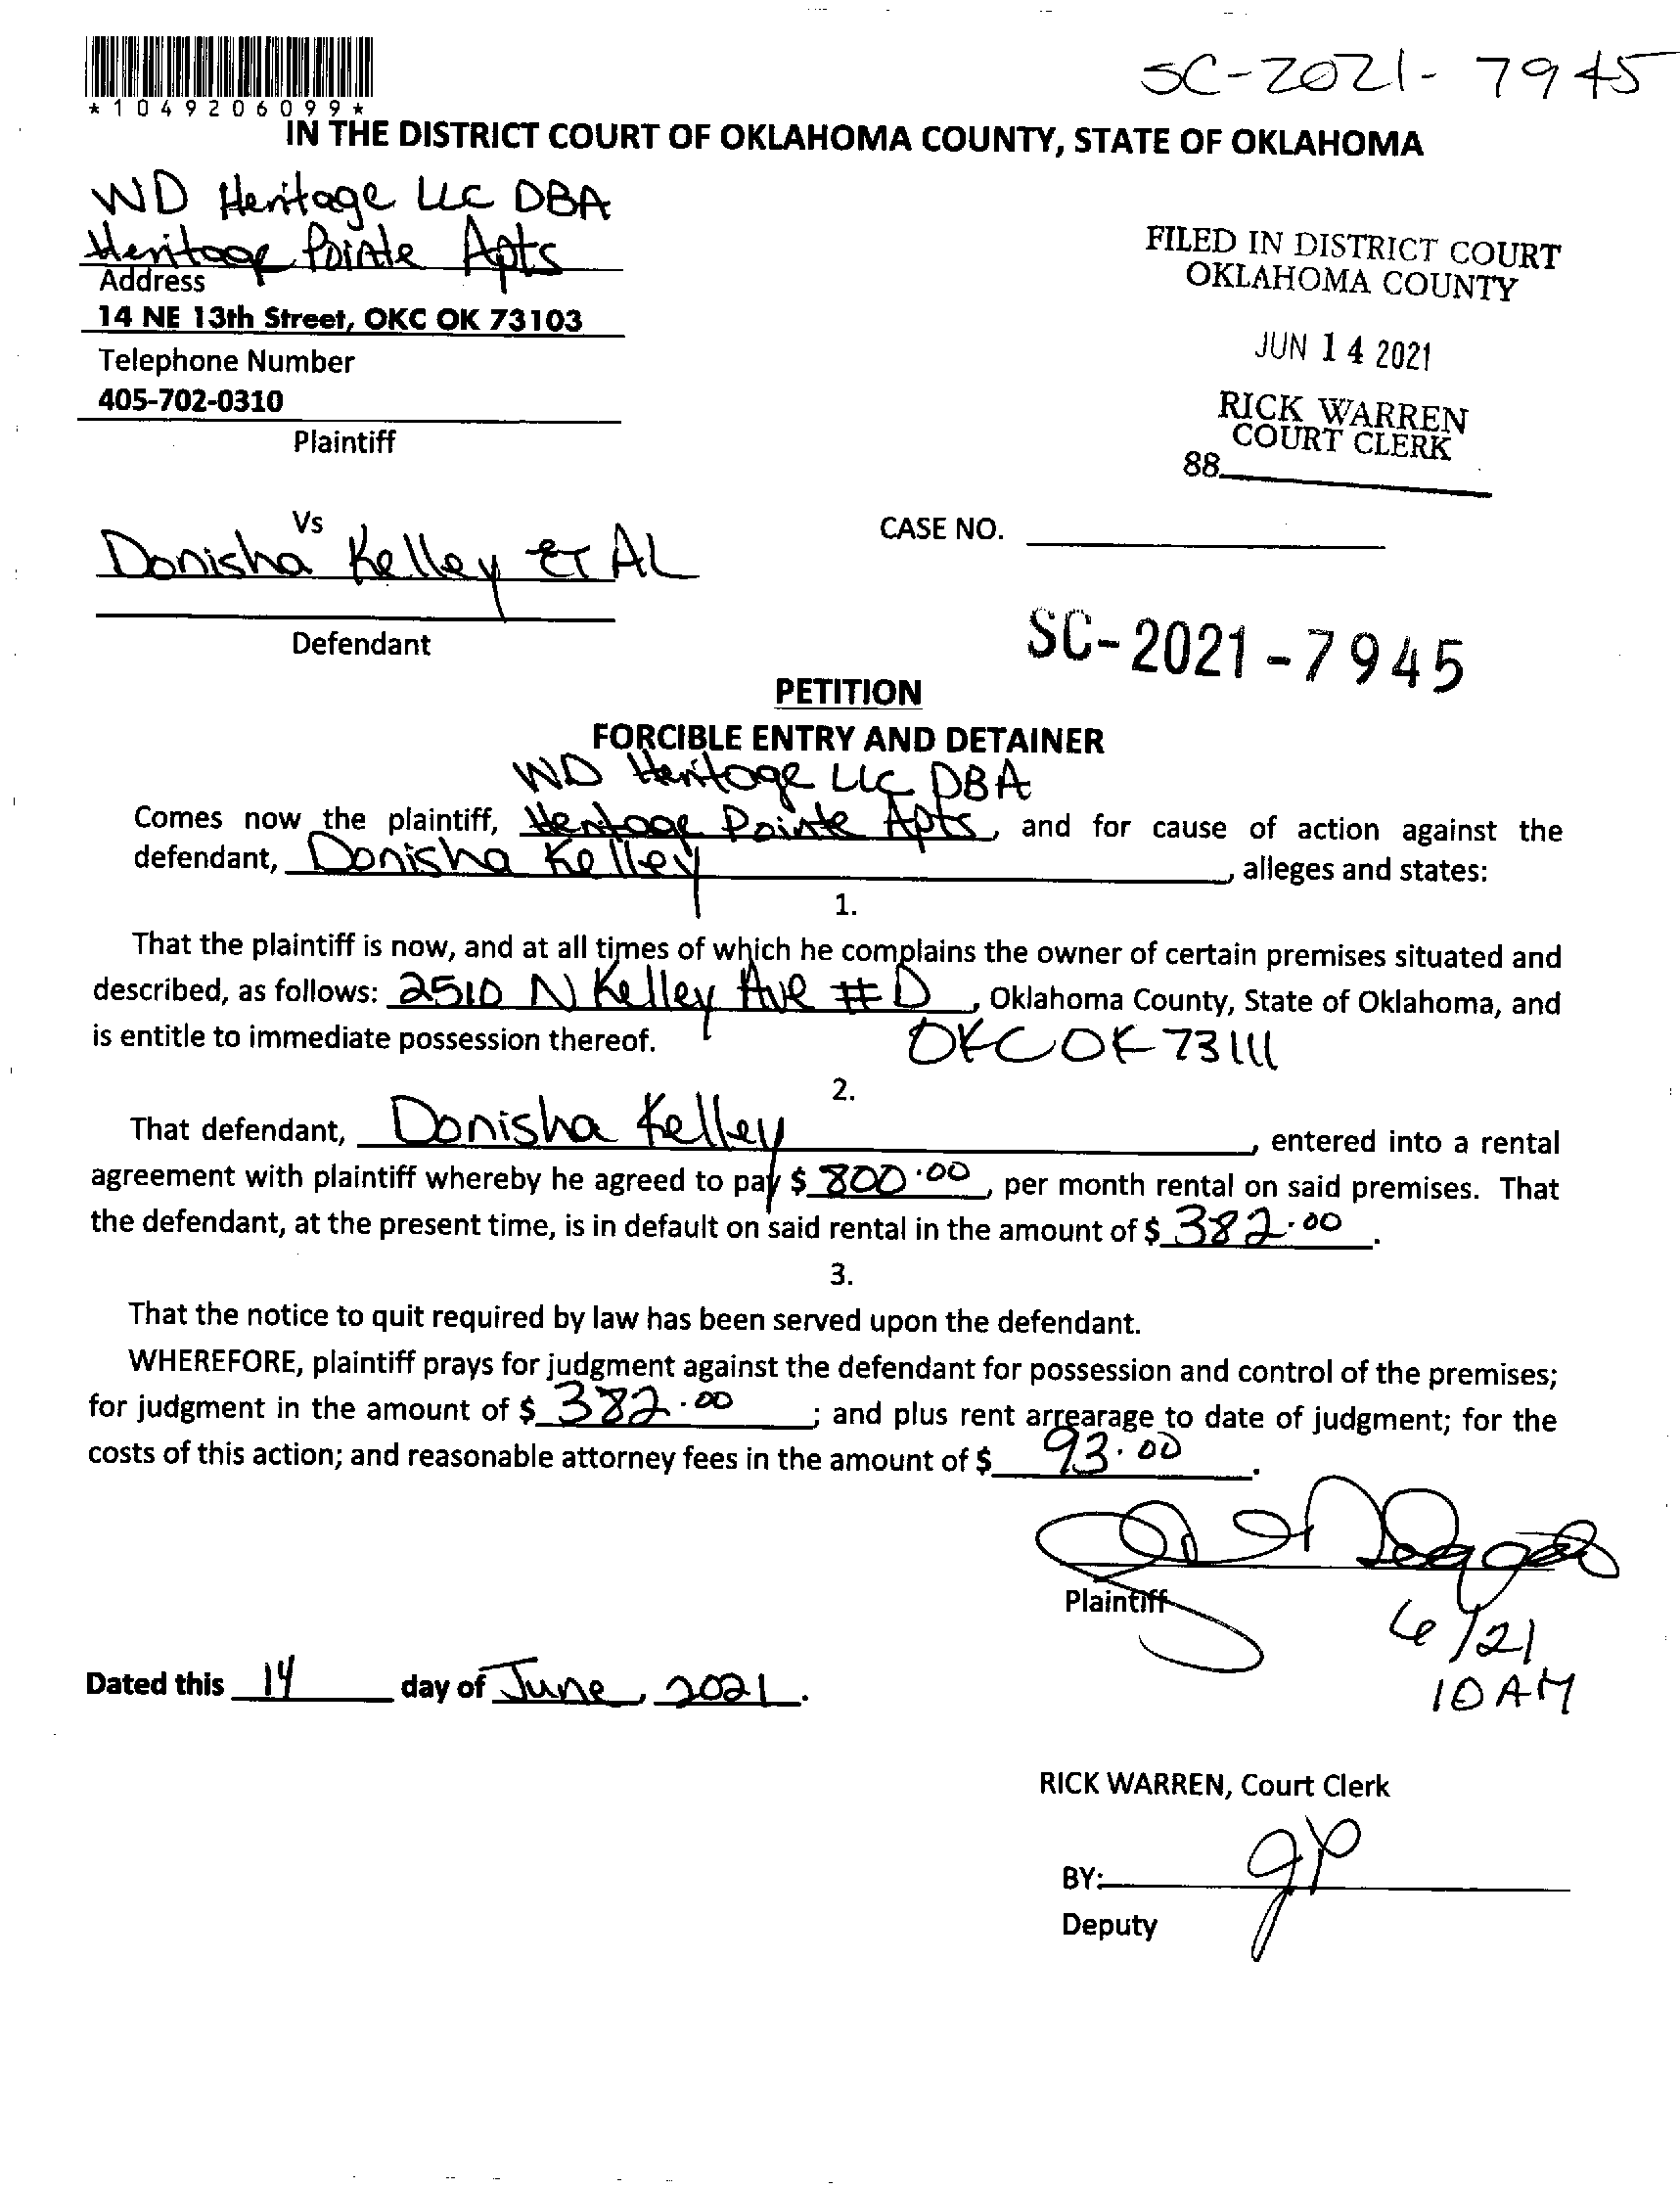 SC-2021-7945
*1049206099*
IN THE DISTRICT COURT OF OKLAHOMA COUNTY, STATE OF OKLAHOMA
WD Heritage LLC DBA
Heritage Pointe Apts
Address
14 NE 13th Street, OKC OK 73103
Telephone Number
405-702-0310
Plaintiff
FILED IN DISTRICT COURT
OKLAHOMA COUNTY
JUN 14 2021
RICK WARREN
COURT CLERK
88
Vs
Donisha Kelley ET AL
Defendant
CASE NO.
SC-2021-7945
PETITION
FORCIBLE ENTRY AND DETAINER
WD Heritage LLC DBA
Comes now the plaintiff, Heritage Pointe Apts, and for cause of action against the
defendant, Donisha Kelley, alleges and states:
1.
That the plaintiff is now, and at all times of which he complains the owner of certain premises situated and
described, as follows: 2510 N Kelley Ave #D, Oklahoma County, State of Oklahoma, and
is entitle to immediate possession thereof. OKC OK 73111
2.
That defendant, Donisha Kelley, entered into a rental
agreement with plaintiff whereby he agreed to pay $ 800.00, per month rental on said premises. That
the defendant, at the present time, is in default on said rental in the amount of $ 382.00.
3.
That the notice to quit required by law has been served upon the defendant.
WHEREFORE, plaintiff prays for judgment against the defendant for possession and control of the premises;
for judgment in the amount of $ 382.00; and plus rent arrearage to date of judgment; for the
costs of this action; and reasonable attorney fees in the amount of $ 93.00.
Plaintiff
6/21
10 AM
Dated this 14 day of June, 2021.
RICK WARREN, Court Clerk
BY:
Deputy